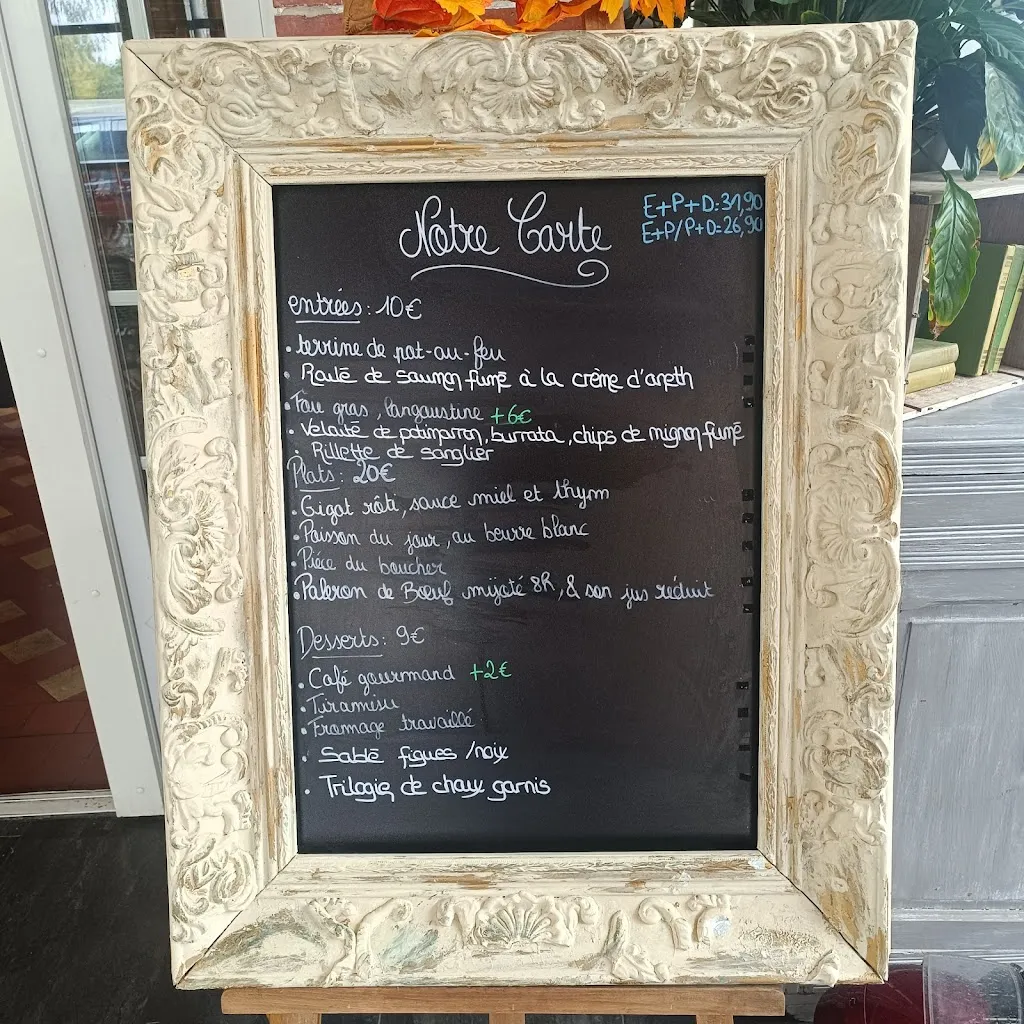 Notre Carte
E+P+D=31,90
E+P/P+D=26,90
entrées: 10€
• terrine de pot-au-feu
• Roulé de saumon fumé à la crème d'aneth
• Foie gras, langoustine +6€
• Velouté de potimarron, burrata, chips de mignon fumé
• Rillette de sanglier
Plats: 20€
• Gigot rôti, sauce miel et thym
• Poisson du jour, au beurre blanc
• Pièce du boucher
• Paleron de Bœuf mijoté 8H, & son jus réduit
Desserts: 9€
• Café gourmand +2€
• Tiramisu
• Fromage travaillé
• Sablé figues/noix
• Trilogie de choux garnis